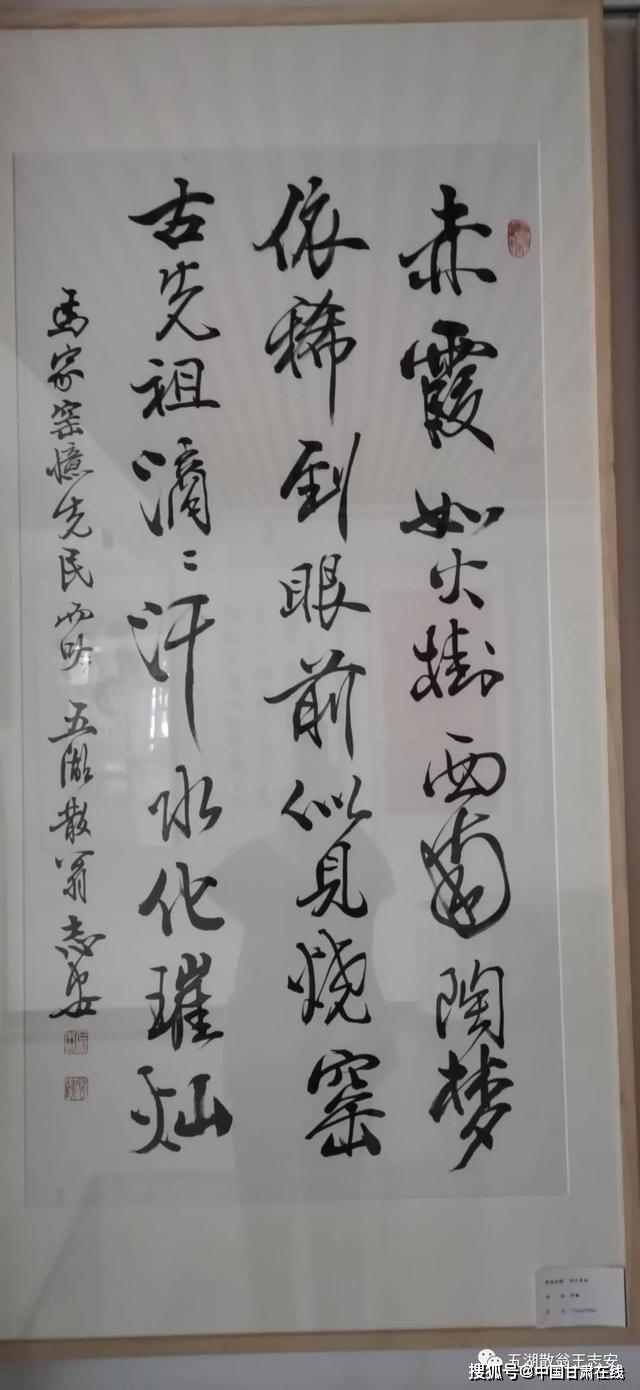 赤霞如火樹西南陶梦
依稀到眼前似見燒窑
古先祖滴〻汗水化璀灿
馬家窑憶先民而吟 五湖散翁志安
五湖散翁王志安
搜狐号@中国甘肃在线